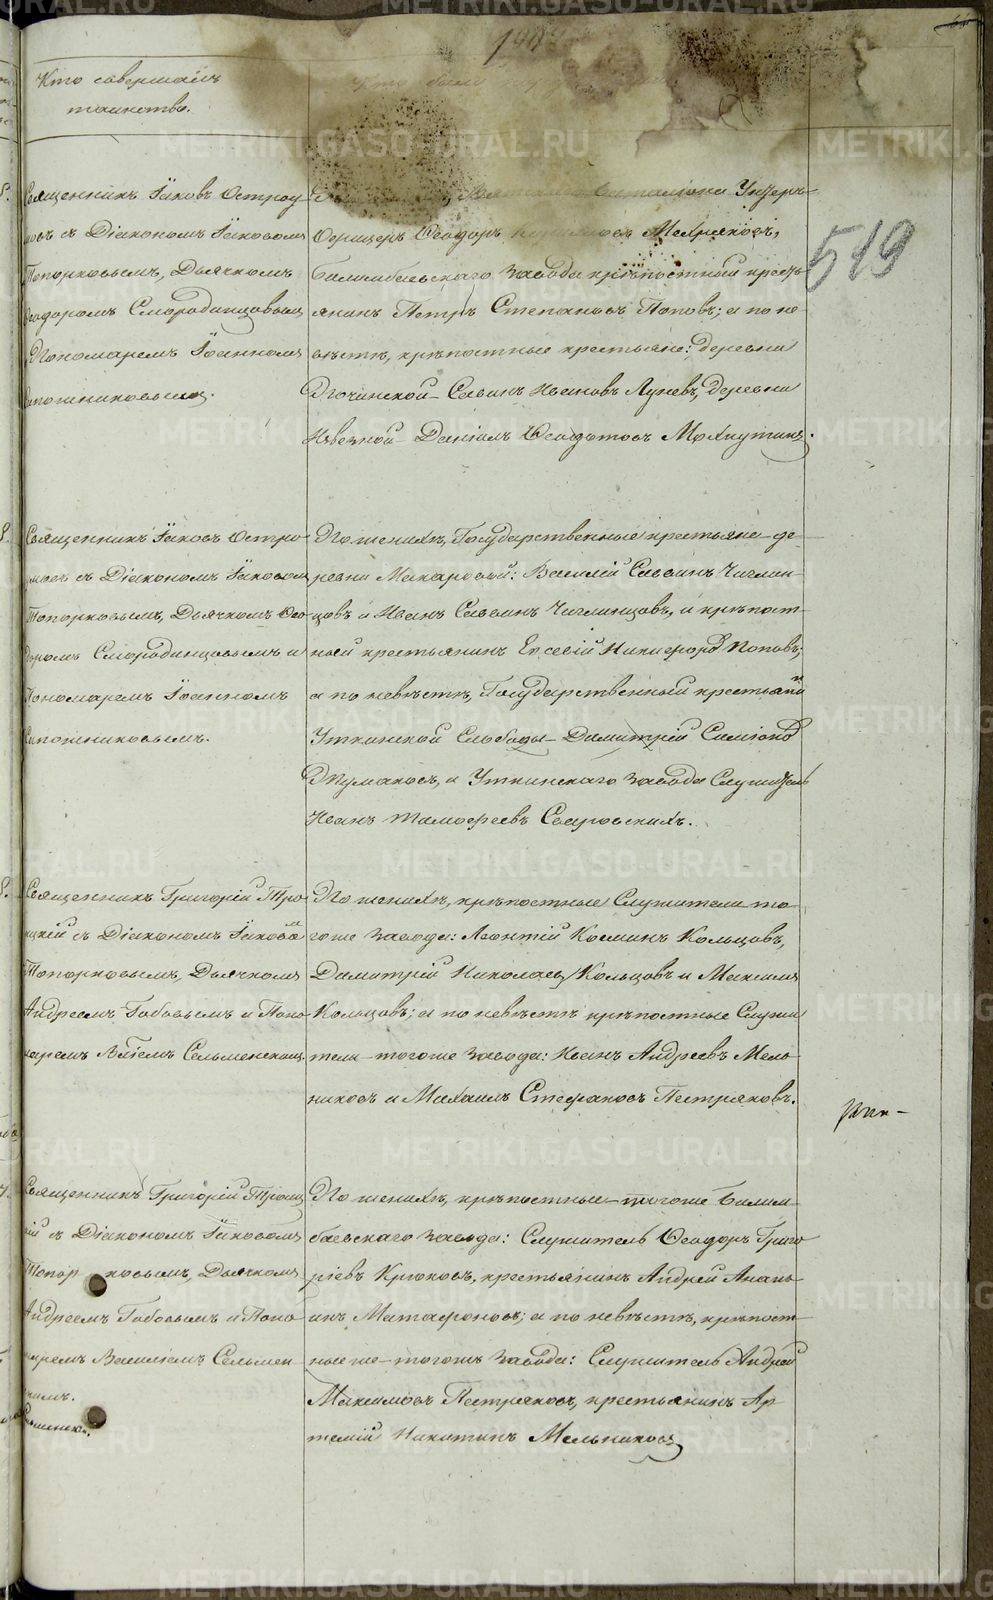 Кто совершалъ
таинство.
519
Священникъ Іаковъ Остроу-
мовъ съ Діакономъ Іаковомъ
Топорковымъ, Дьячкомъ
Ѳеодоромъ Смородинцовымъ
Пономаремъ Іоанномъ
Сапожниковымъ.
Баталіона Унтеръ-
Офицеръ Ѳеодоръ Мехряковъ,
Билимбаевскаго завода крѣпостный кресть-
янинъ Петръ Степановъ Поповъ; а по не-
вѣстѣ, крѣпостные крестьяне: деревни
Савинъ Ивановъ Лузевъ, деревни
Даніилъ Ѳеодотовъ Махнуткинъ.
Священникъ Іаковъ Остро-
умовъ съ Діакономъ Іаковомъ
Топорковымъ, Дьячкомъ Ѳео-
доромъ Смородинцовымъ и
Пономаремъ Іоанномъ
Сапожниковымъ.
По женихѣ, Государственные крестьяне де-
ревни Макаровой: Василій Савинъ Чиглин-
цовъ и Иванъ Савинъ Чиглинцовъ, и крѣпост-
ный крестьянинъ Евсевій Никифоровъ Поповъ;
а по невѣстѣ, Государственный крестьянинъ
Уткинской Слободы Димитрій Симеоновъ
и Уткинскаго завода Служитель
Иванъ Тимоѳеевъ Сваровскихъ.
Священникъ Григорій Тро-
ицкій съ Діакономъ Іаковомъ
Топорковымъ, Дьячкомъ
Андреемъ Бобовымъ и Поно-
маремъ Сельменскимъ
По женихѣ, крѣпостные Служители то-
гоже завода: Леонтій Козминъ Кольцовъ,
Димитрій Николаевъ Кольцовъ и Максимъ
Кольцовъ; а по невѣстѣ крѣпостные Служи-
тели тогоже завода: Иванъ Андреевъ Мель-
никовъ и Михаилъ Стефановъ Пестряковъ.
Священникъ Григорій Троиц-
кій съ Діакономъ Іаковомъ
Топорковымъ, Дьячкомъ
Андреемъ Бобовымъ и Поно-
маремъ Василіемъ Сельмен-
скимъ.
По женихѣ, крѣпостные тогоже Билим-
баевскаго завода: Служитель Ѳеодоръ Григо-
ріевъ Крюковъ, крестьянинъ Андрей Анань-
инъ Матафоновъ; а по невѣстѣ, крѣпост-
ные же тогожъ завода: Служитель Андрей
Максимовъ Пестряковъ, крестьянинъ Ар-
темій Никитинъ Мельниковъ
METRIKI.GASO-URAL.RU